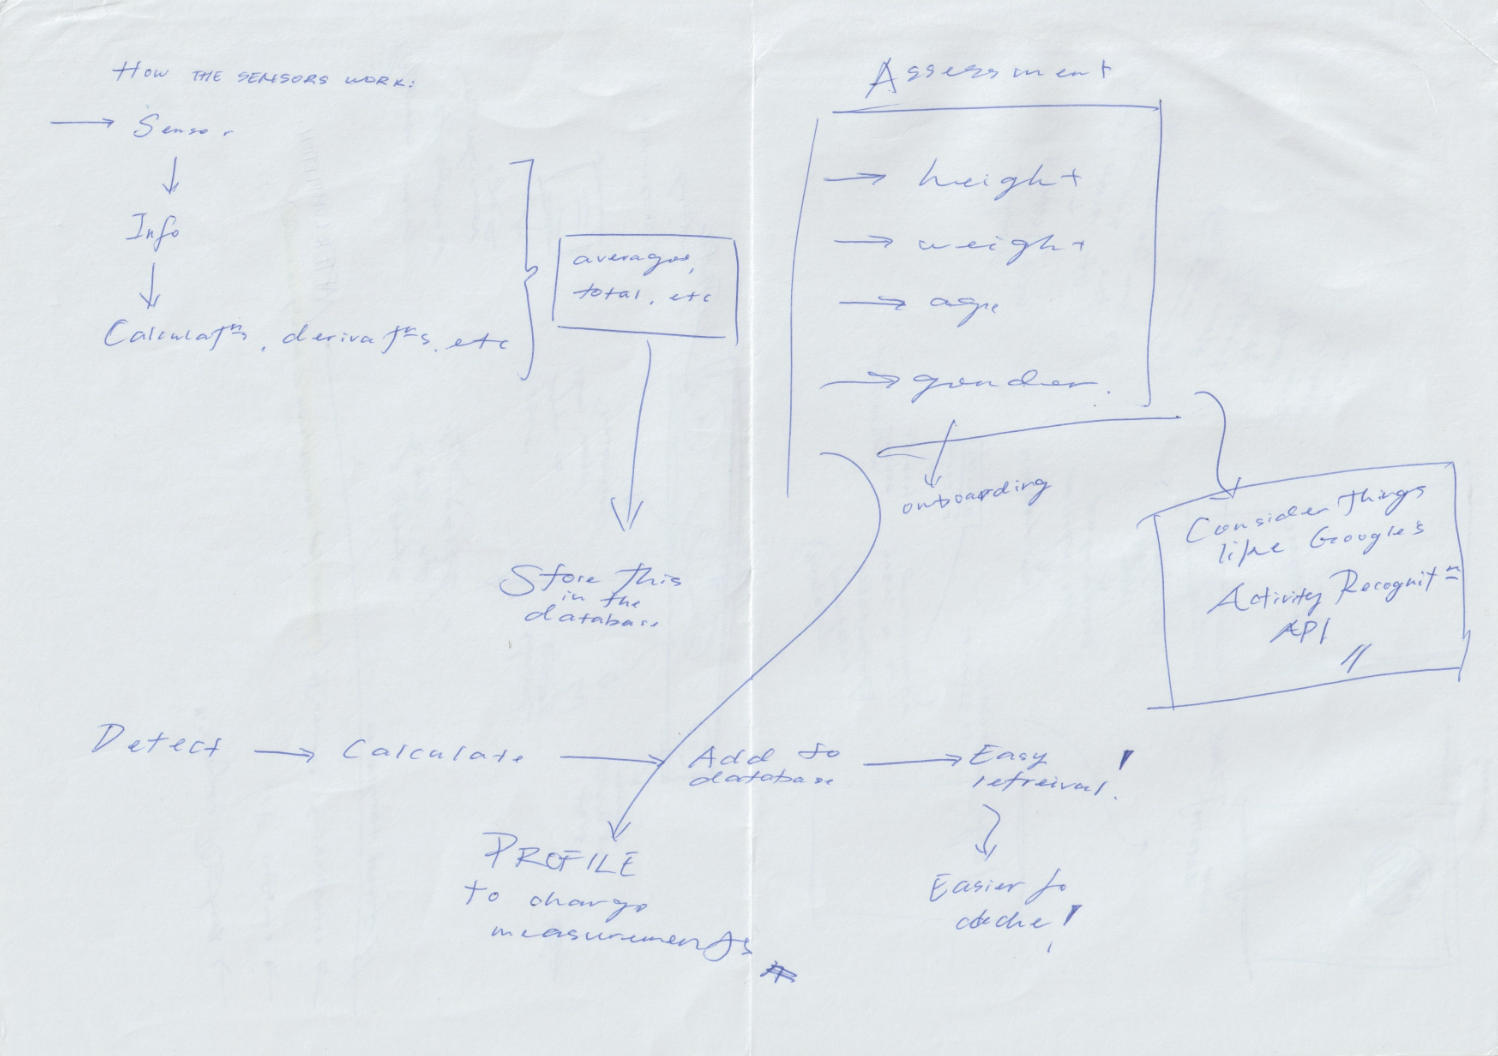 HOW THE SENSORS WORK:
Sensor
Info
Calculatns, derivatns, etc
averages,
total, etc
Store this
in the
database
Assessment
height
weight
age
gender.
onboarding
Consider things
like Google's
Activity Recognitn
API
Detect
Calculate
Add to
database
Easy
retreival!
Easier to
cache!
PROFILE
to change
measurements